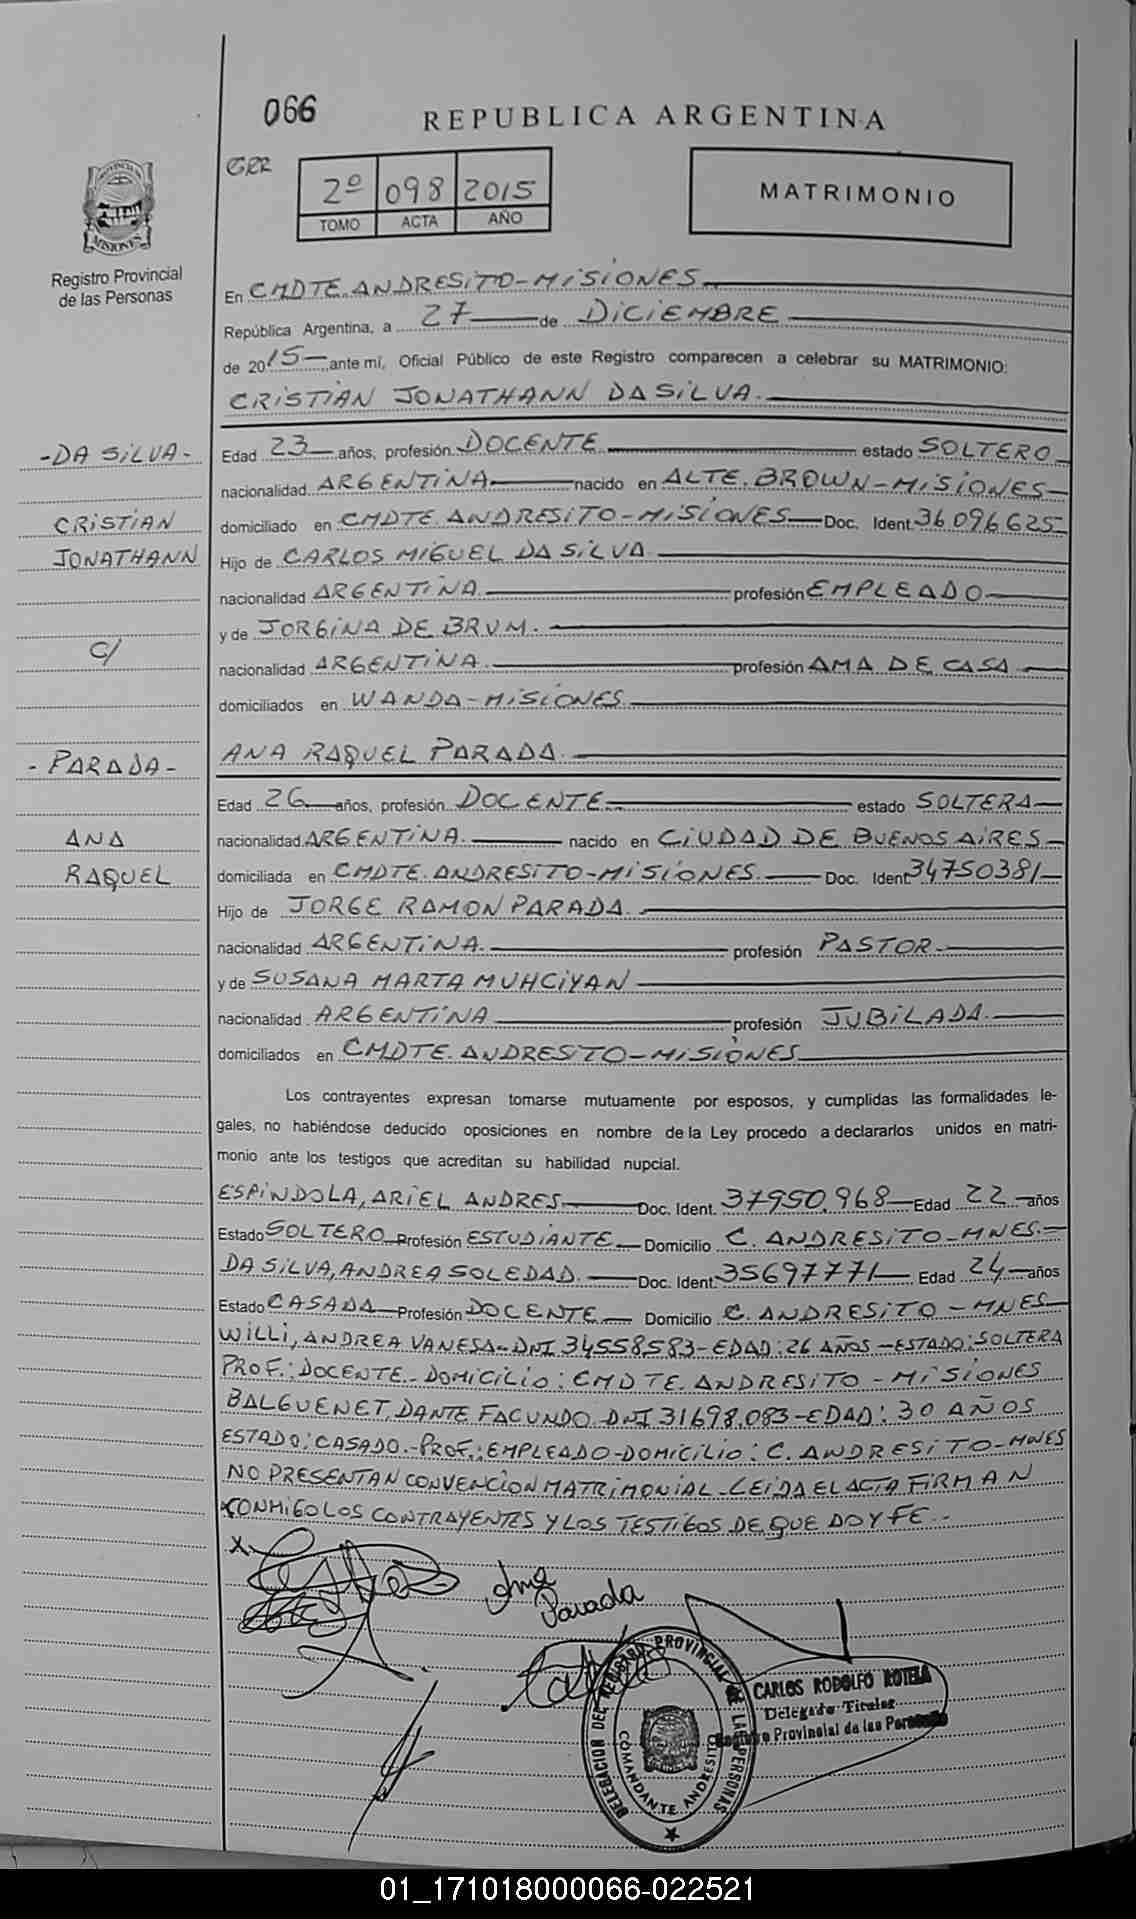 066
REPUBLICA ARGENTINA
GRR
2º 098 2015
TOMO ACTA AÑO
MATRIMONIO
PROVINCIA DE
MISIONES
Registro Provincial
de las Personas
En CMDTE. ANDRESITO-MISIONES
República Argentina, a 27 de DICIEMBRE
de 2015 ante mí, Oficial Público de este Registro comparecen a celebrar su MATRIMONIO:
CRISTIAN JONATHANN DA SILVA.
-DA SILVA-
CRISTIAN
JONATHANN
C/
-PARADA-
ANA
RAQUEL
Edad 23 años, profesión DOCENTE estado SOLTERO
nacionalidad ARGENTINA nacido en ALTE. BROWN-MISIONES-
domiciliado en CMDTE. ANDRESITO-MISIONES Doc. Ident. 36.096.625
Hijo de CARLOS MIGUEL DA SILVA
nacionalidad ARGENTINA. profesión EMPLEADO
y de JORGINA DE BRUM.
nacionalidad ARGENTINA. profesión AMA DE CASA
domiciliados en WANDA-MISIONES
ANA RAQUEL PARADA.
Edad 26 años, profesión DOCENTE estado SOLTERA
nacionalidad ARGENTINA. nacido en CIUDAD DE BUENOS AIRES-
domiciliada en CMDTE. ANDRESITO-MISIONES. Doc. Ident. 34750381
Hijo de JORGE RAMON PARADA.
nacionalidad ARGENTINA. profesión PASTOR.-
y de SUSANA MARTA MUHCIYAN
nacionalidad ARGENTINA profesión JUBILADA.
domiciliados en CMDTE. ANDRESITO-MISIONES
Los contrayentes expresan tomarse mutuamente por esposos, y cumplidas las formalidades le-
gales, no habiéndose deducido oposiciones en nombre de la Ley procedo a declararlos unidos en matri-
monio ante los testigos que acreditan su habilidad nupcial.
ESPINDOLA, ARIEL ANDRES. Doc. Ident. 37950.968 Edad 22 años
Estado SOLTERO Profesión ESTUDIANTE Domicilio C. ANDRESITO-MNES.-
DA SILVA, ANDREA SOLEDAD. Doc. Ident. 35697771 Edad 24 años
Estado CASADA Profesión DOCENTE Domicilio C. ANDRESITO-MNES
WILLI, ANDREA VANESA-DNI 34558583-EDAD: 26 AÑOS-ESTADO: SOLTERA
PROF.: DOCENTE-DOMICILIO: CMDTE. ANDRESITO-MISIONES
BALGUENET, DANTE FACUNDO. DNI 31698.083-EDAD: 30 AÑOS
ESTADO: CASADO.-PROF.: EMPLEADO-DOMICILIO: C. ANDRESITO-MNES
NO PRESENTAN CONVENCION MATRIMONIAL-LEIDA EL ACTA FIRMAN
CONMIGO LOS CONTRAYENTES Y LOS TESTIGOS DE QUE DOY FE.-
X
Ana
Parada
DELEGACION DEL REGISTRO PROVINCIAL DE LAS PERSONAS
COMANDANTE ANDRESITO
CARLOS RODOLFO ROTELA
Delegado Titular
Registro Provincial de las Personas
01_171018000066-022521